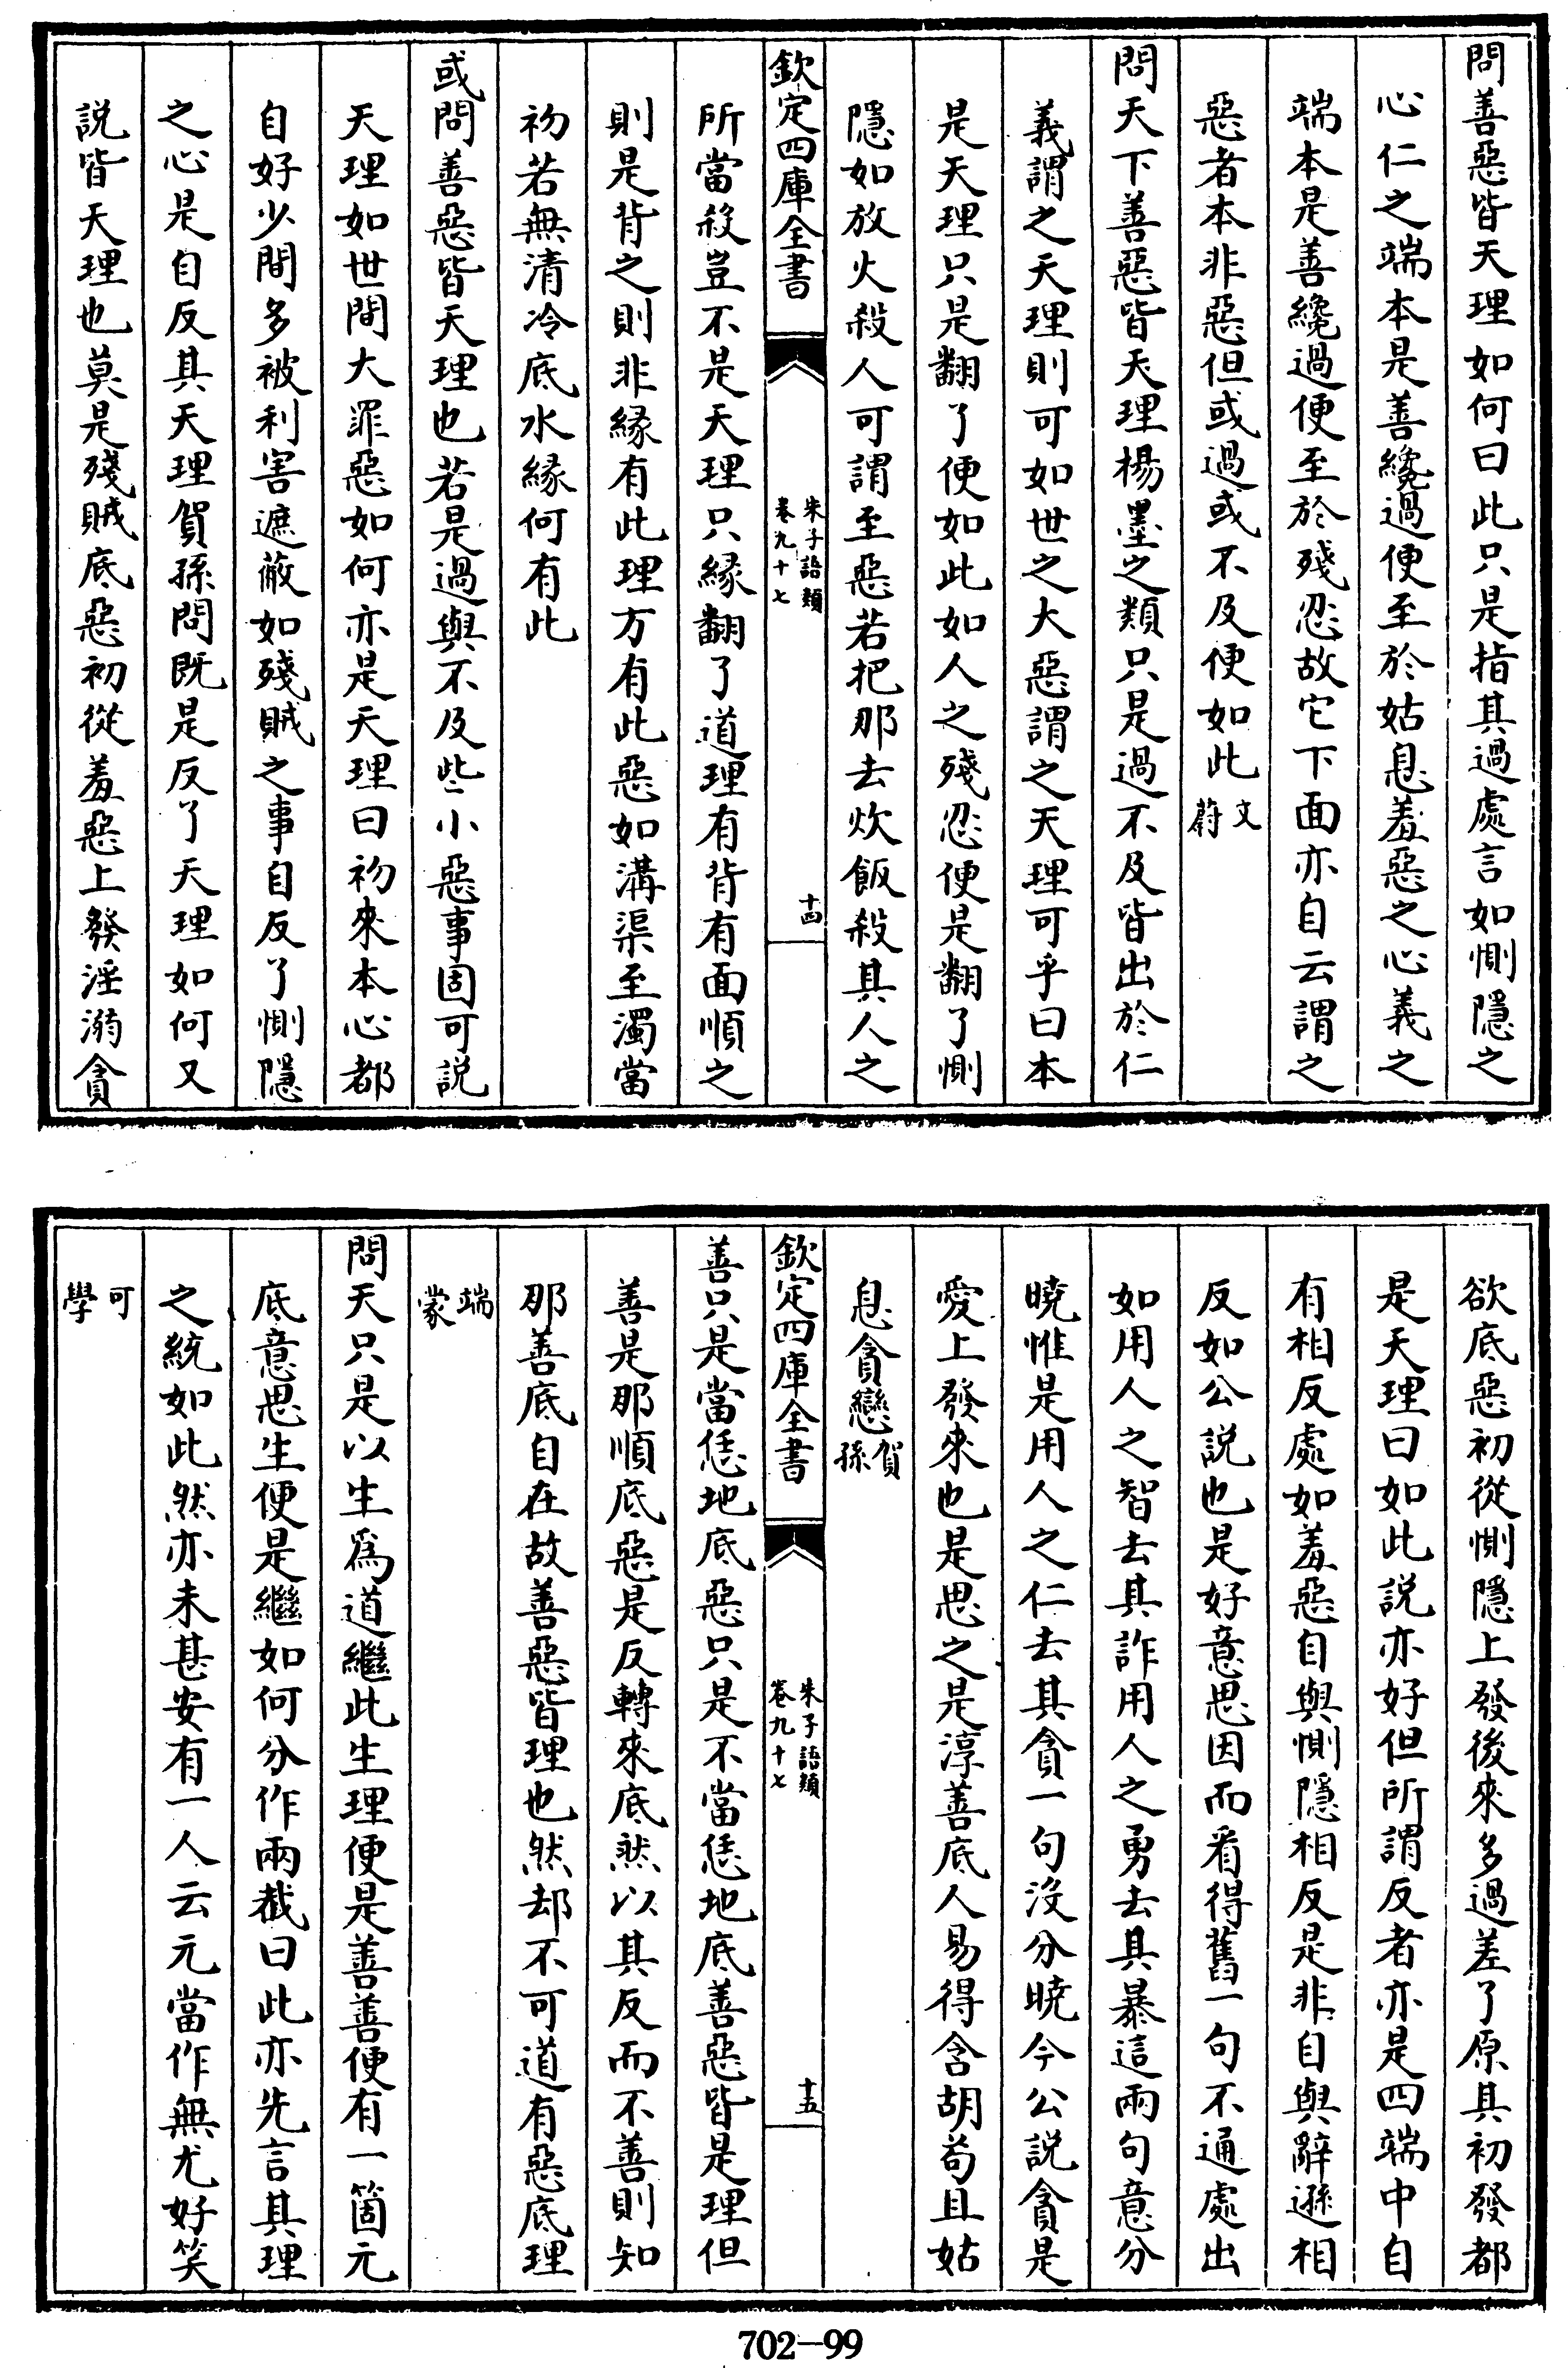 問善惡皆天理如何曰此只是指其過處言如惻隱之
心仁之端本是善纔過便至於姑息羞惡之心義之
端本是善纔過便至於殘忍故它下面亦自云謂之
惡者本非惡但或過或不及便如此文蔚
問天下善惡皆天理楊墨之類只是過不及皆出於仁
義謂之天理則可如世之大惡謂之天理可乎曰本
是天理只是翻了便如此如人之殘忍便是翻了惻
隱如放火殺人可謂至惡若把那去炊飯殺其人之
欽定四庫全書
朱子語類
卷九十七
十四
所當殺豈不是天理只緣翻了道理有背有面順之
則是背之則非緣有此理方有此惡如溝渠至濁當
初若無清冷底水緣何有此
或問善惡皆天理也若是過與不及些小惡事固可説
天理如世間大罪惡如何亦是天理曰初來本心都
自好少間多被利害遮蔽如殘賊之事自反了惻隱
之心是自反其天理賀孫問既是反了天理如何又
説皆天理也莫是殘賊底惡初從羞惡上發淫溺貪
欲底惡初從惻隱上發後來多過差了原其初發都
是天理曰如此説亦好但所謂反者亦是四端中自
有相反處如羞惡自與惻隱相反是非自與辭遜相
反如公説也是好意思因而看得舊一句不通處出
如用人之智去其詐用人之勇去其暴這兩句意分
曉惟是用人之仁去其貪一句沒分曉今公説貪是
愛上發來也是思之是淳善底人易得含胡苟且姑
息貪戀賀孫
欽定四庫全書
朱子語類
卷九十七
十五
善只是當恁地底惡只是不當恁地底善惡皆是理但
善是那順底惡是反轉來底然以其反而不善則知
那善底自在故善惡皆理也然却不可道有惡底理
端蒙
問天只是以生爲道繼此生理便是善善便有一箇元
底意思生便是繼如何分作兩截曰此亦先言其理
之統如此然亦未甚安有一人云元當作無尤好笑
可學
702-99